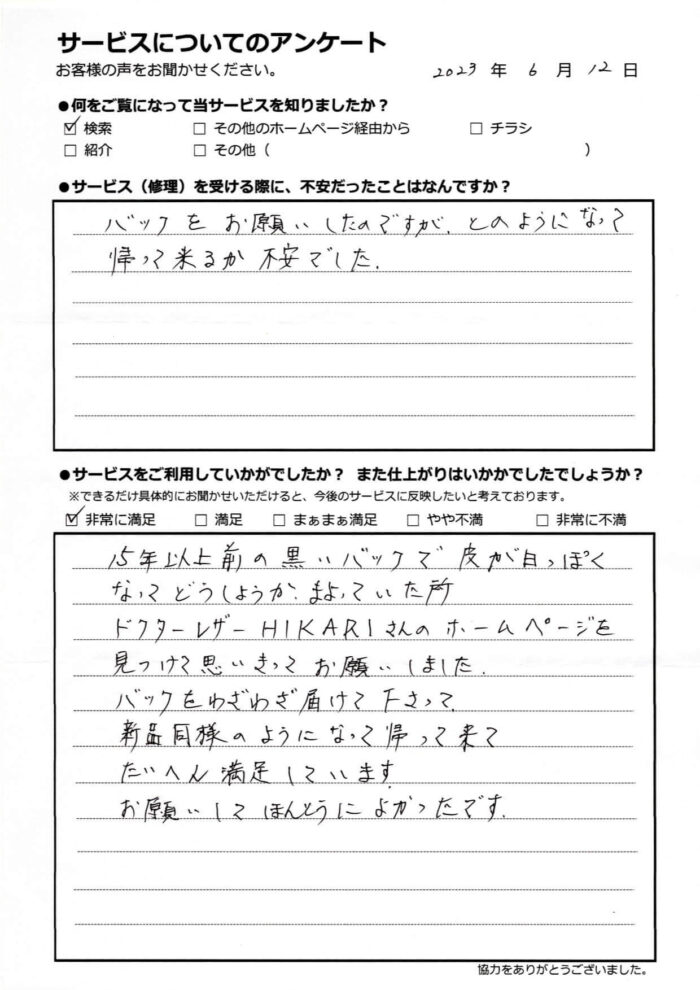 サービスについてのアンケート
お客様の声をお聞かせください。
2023 年 6 月 12 日
●何をご覧になって当サービスを知りましたか？
☑ 検索 □ その他のホームページ経由から □ チラシ
□ 紹介 □ その他（ ）
●サービス（修理）を受ける際に、不安だったことはなんですか？
バックを お願いしたのですが、とのようになって
帰って来るか 不安でした.
●サービスをご利用していかがでしたか？ また仕上がりはいかかでしたでしょうか？
※できるだけ具体的にお聞かせいただけると、今後のサービスに反映したいと考えております。
☑ 非常に満足 □ 満足 □ まぁまぁ満足 □ やや不満 □ 非常に不満
15年以上前の黒いバックで 皮が白っぽく
なってどうしようか、まよっていた所
ドクターレザーHIKARIさんのホームページを
見つけて思いきってお願いしました.
バックをわざわざ届けて下さって、
新品同様のようになって帰って来て
たいへん満足しています.
お願いしてほんとうによかったです.
協力をありがとうございました。